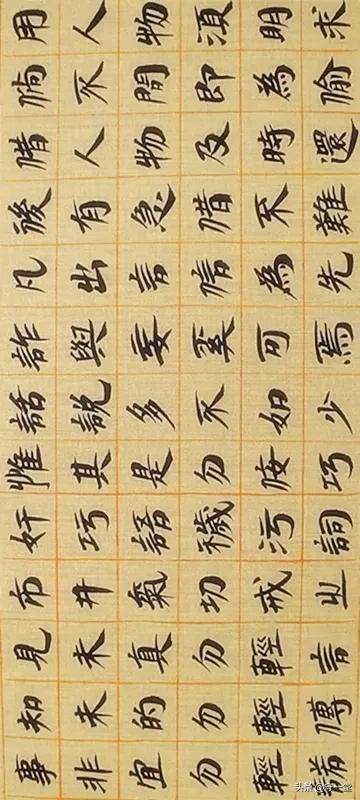 用人物須明求
倘不問即為偷
借人物及時還
後有急借不難
凡出言信為先
詐與妄奚可焉
話說多不如少
惟其是勿佞巧
奸巧語穢污詞
市井氣切戒之
見未真勿輕言
知未的勿輕傳
事非宜勿輕諾
头条 @守一堂